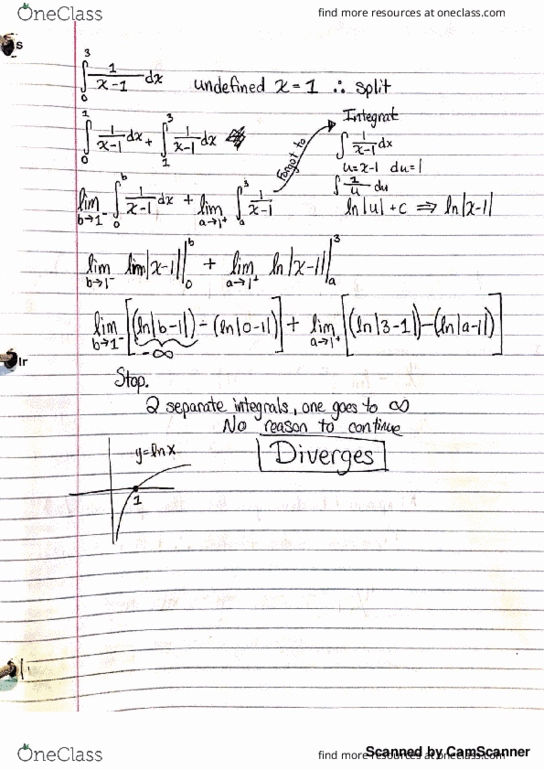 OneClass find more resources at oneclass.com
s
∫₀³ 1/(x-1) dx undefined x = 1 ∴ split
Integrat
∫₀¹ 1/(x-1) dx + ∫₁³ 1/(x-1) dx
∫ 1/(x-1) dx
Forgot to
u=x-1 du=1
lim b→1⁻ ∫₀ᵇ 1/(x-1) dx + lim a→1⁺ ∫ₐ³ 1/(x-1)
ln|u| + c ⇒ ln|x-1|
lim b→1⁻ lim|x-1| |₀ᵇ + lim a→1⁺ ln|x-1| |ₐ³
lim b→1⁻ [(ln|b-1|) - (ln|0-1|)] + lim a→1⁺ [(ln|3-1|) - (ln|a-1|)]
-∞
Ir
Stop.
2 separate integrals, one goes to ∞
No reason to continue
y=ln x
Diverges
1
OneClass find more resources at oneclass.com
Scanned by CamScanner